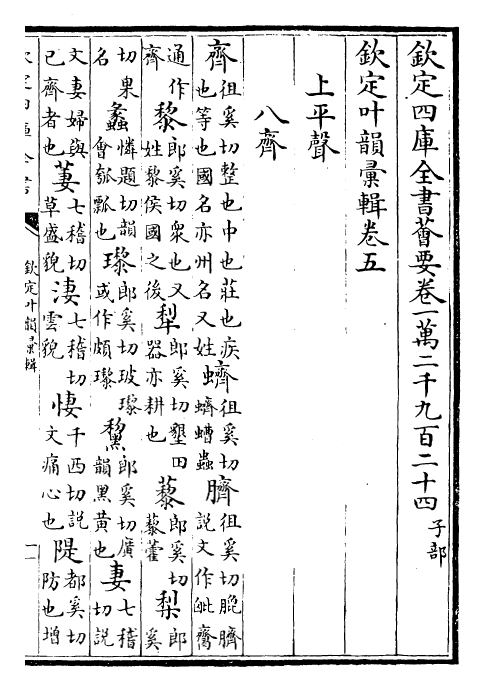 欽定四庫全書薈要卷一萬二千九百二十四 子部
欽定叶韻彚輯卷五
上平聲
八齊
齊徂奚切整也中也莊也疾也等也國名亦州名又姓 蠐徂奚切蠐螬蟲 臍徂奚切膍臍說文作
通作齊 黎郎奚切衆也又姓黎侯國之後 犁郎奚切墾田器亦耕也 藜郎奚切藜藿 梨郎奚
切果名 蠡憐題切韻會瓠瓢也 瓈郎奚切玻瓈或作頗瓈 黧郎奚切廣韻黑黄也 妻七稽切說
文妻婦與已齊者也 萋七稽切草盛貌 淒七稽切雲貌 悽千西切說文痛心也 隄都奚切防也增
欽定四庫全書
欽定叶韻彚輯